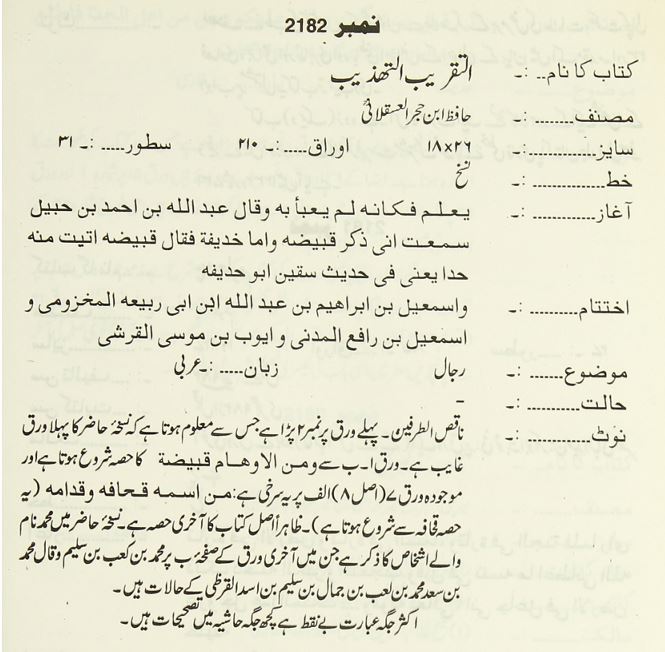 نمبر 2182
کتاب کا نام.. :۔ التقریب التہذیب
مصنف.......... :۔ حافظ ابن حجر العسقلانیؒ
سایز............ :۔ ۱۸×۲۶ اوراق..... :۔ ۲۱۰ سطور..... :۔ ۳۱
خط............... :۔ نسخ
آغاز............. :۔ یعلم فکانه لم یعبأ به وقال عبد الله بن احمد بن حبیل
سمعت انی ذکر قبیضه واما خدیفة فقال قبیضه اتیت منه
حدا یعنی فی حدیث سقین ابو حدیفه
اختتام.......... :۔ واسمعیل بن ابراهیم بن عبد الله ابن ابی ربیعه المخزومی و
اسمعیل بن رافع المدنی و ایوب بن موسی القرشی
موضوع....... :۔ رجال زبان..... :۔ عربی
حالت............ :۔ -
نوٹ............. :۔ ناقص الطرفین۔ پہلے ورق پر نمبر ۲ پڑا ہے جس سے معلوم ہوتا ہے کہ نسخۂ حاضر کا پہلا ورق
غایب ہے۔ ورق ۱۔ب سے ومن الاوهام قبیضة کا حصہ شروع ہوتا ہے اور
موجودہ ورق ۷ (اصل ۸) الف پر یہ سرخی ہے: من اسمه قحافه وقدامه (یہ
حصہ قحافہ سے شروع ہوتا ہے)۔ ظاہراً اصل کتاب کا آخری حصہ ہے۔ نسخۂ حاضر میں محمد نام
والے اشخاص کا ذکر ہے جن میں آخری ورق کے صفحۂ ب پر محمد بن کعب بن سلیم وقال محمد
بن سعد محمد بن لعب بن جمال بن سلیم بن اسد القرظی کے حالات ہیں۔
اکثر جگہ عبارت بے نقط ہے کچھ جگہ حاشیہ میں تصحیحات ہیں۔